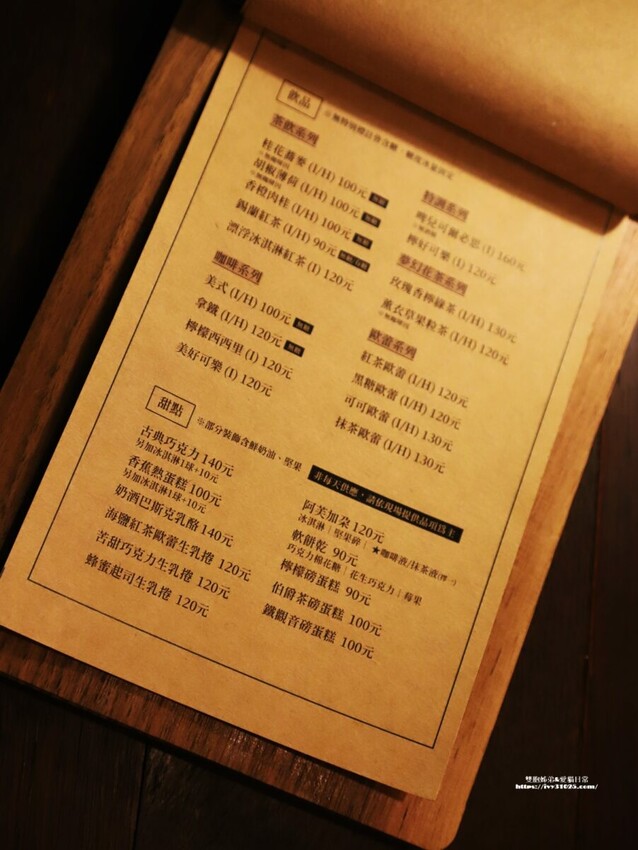 飲品
※無特別標註皆含糖、糖度冰量固定
茶飲系列
桂花蕎麥 (I/H) 100元 無糖
※無咖啡因
胡椒薄荷 (I/H) 100元 無糖
※無咖啡因
香橙肉桂 (I/H) 100元 無糖
錫蘭紅茶 (I/H) 90元
漂浮冰淇淋紅茶 (I) 120元
咖啡系列
美式 (I/H) 100元 無糖
拿鐵 (I/H) 120元 無糖
檸檬西西里 (I) 120元
美好可樂 (I) 120元
特調系列
嗨兒可爾必思 (I) 160元
檸好可樂 (I) 120元
夢幻花茶系列
玫瑰香檸綠茶 (I/H) 130元
薰衣草果粒茶 (I/H) 120元
※無咖啡因
歐蕾系列
紅茶歐蕾 (I/H) 120元
黑糖歐蕾 (I/H) 120元
可可歐蕾 (I/H) 130元
抹茶歐蕾 (I/H) 130元
甜點
※部分裝飾含鮮奶油、堅果
非每天供應，請依現場提供品項為主
古典巧克力 140元
另加冰淇淋1球+10元
香蕉熱蛋糕 100元
另加冰淇淋1球+10元
奶酒巴斯克乳酪 140元
海鹽紅茶歐蕾生乳捲 120元
苦甜巧克力生乳捲 120元
蜂蜜起司生乳捲 120元
阿芙加朵 120元
冰淇淋｜堅果碎｜★咖啡液/抹茶液
軟餅乾 90元
巧克力棉花糖｜花生巧克力｜莓果
檸檬磅蛋糕 90元
伯爵茶磅蛋糕 100元
鐵觀音磅蛋糕 100元
雙胞姊弟&愛貓日常
https://ivv31025.com/